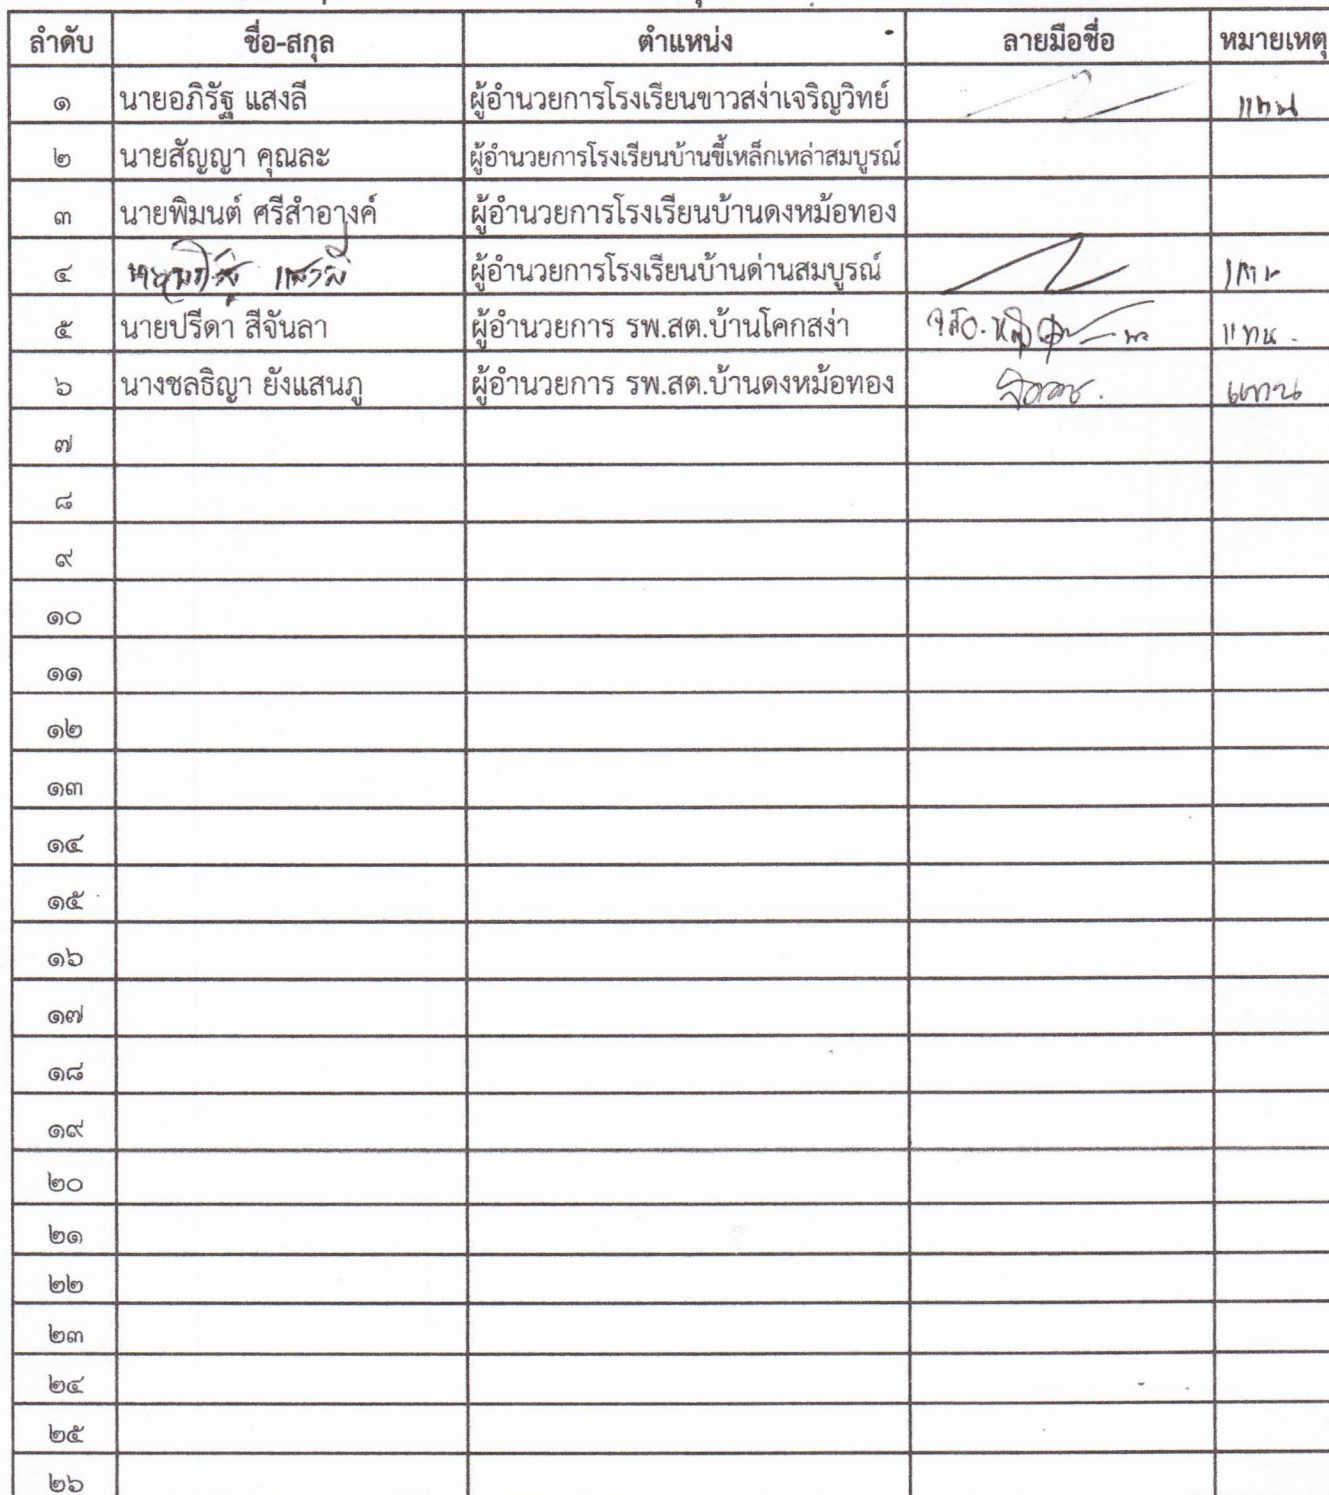 ลำดับ ชื่อ-สกุล ตำแหน่ง ลายมือชื่อ หมายเหตุ
๑ นายอภิรัฐ แสงลี ผู้อำนวยการโรงเรียนขาวสง่าเจริญวิทย์ แทน
๒ นายสัญญา คุณละ ผู้อำนวยการโรงเรียนบ้านขี้เหล็กเหล่าสมบูรณ์
๓ นายพิมนต์ ศรีสำอางค์ ผู้อำนวยการโรงเรียนบ้านดงหม้อทอง
๔ ผู้อำนวยการโรงเรียนบ้านด่านสมบูรณ์ แทน
๕ นายปรีดา สีจันลา ผู้อำนวยการ รพ.สต.บ้านโคกสง่า แทน.
๖ นางชลธิญา ยังแสนภู ผู้อำนวยการ รพ.สต.บ้านดงหม้อทอง แทน
๗
๘
๙
๑๐
๑๑
๑๒
๑๓
๑๔
๑๕
๑๖
๑๗
๑๘
๑๙
๒๐
๒๑
๒๒
๒๓
๒๔
๒๕
๒๖